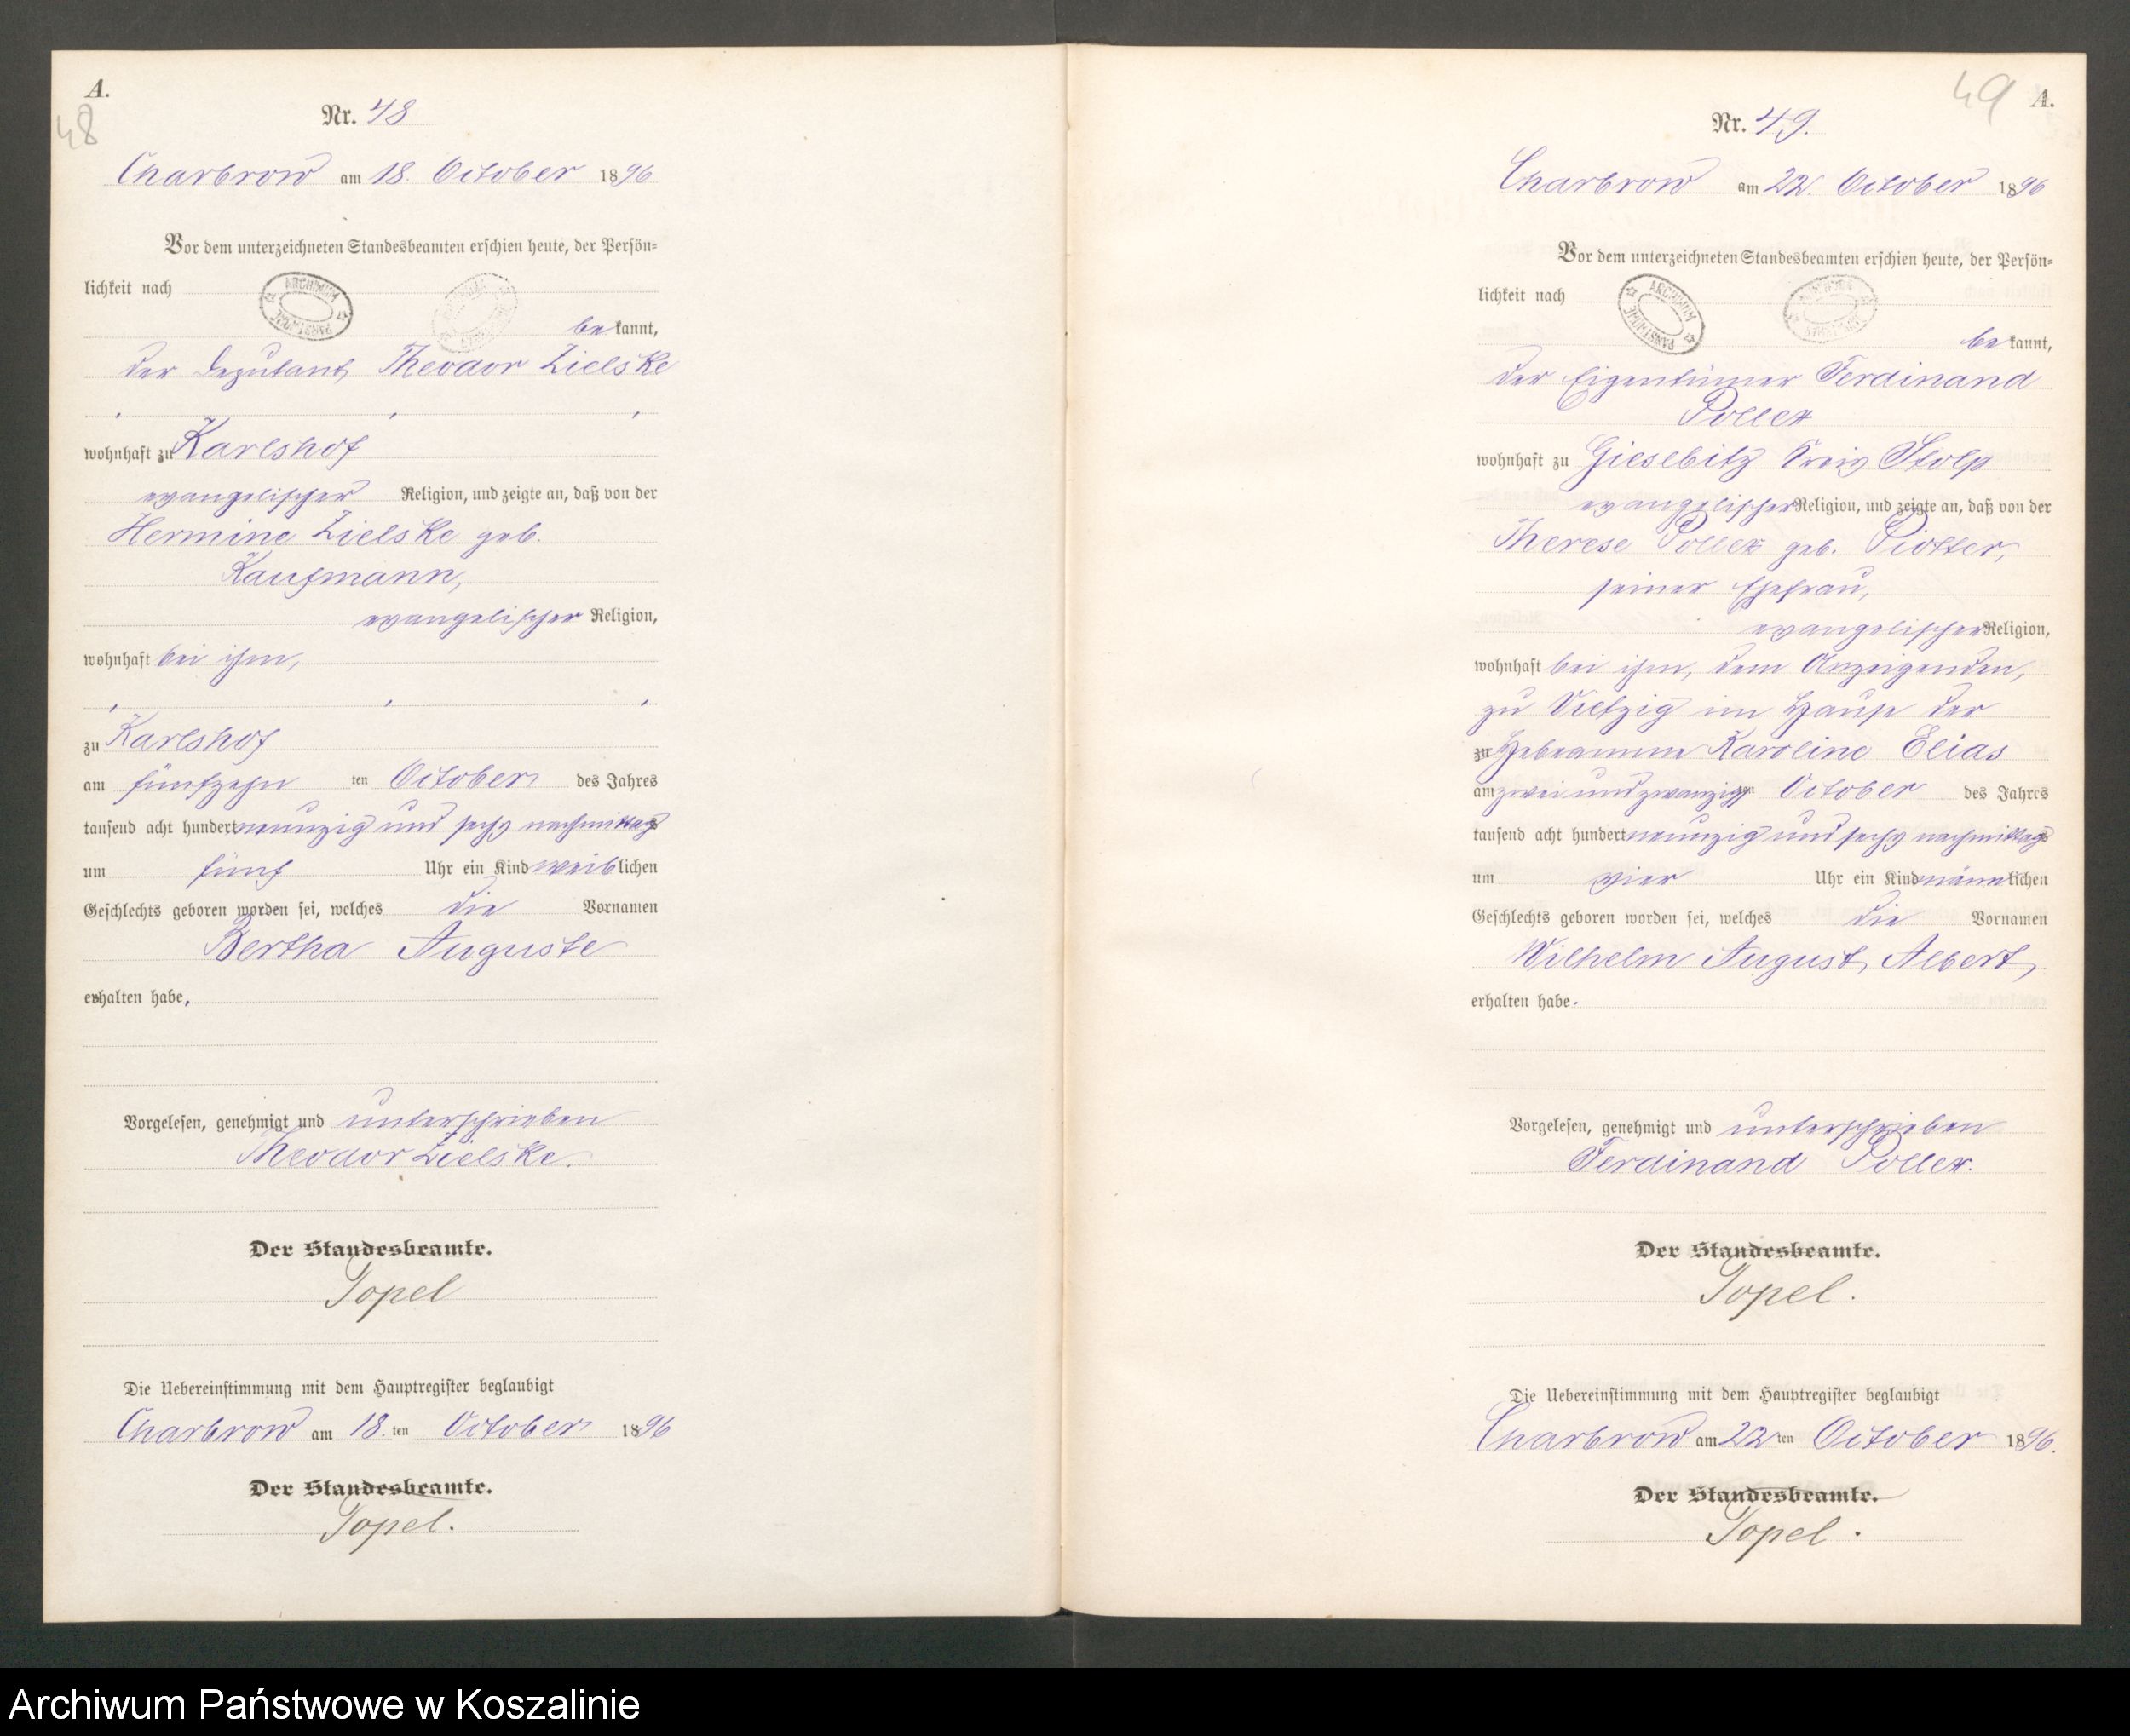 A.
48
Nr. 48
Charbrow am 18. October 1896
Vor dem unterzeichneten Standesbeamten erschien heute, der Persön=
lichkeit nach
ARCHIWUM PAŃSTWOWE
bekannt,
der Deputant Theodor Zielske
wohnhaft zu Karlshof
evangelischer Religion, und zeigte an, daß von der
Hermine Zielske geb.
Kaufmann,
evangelischer Religion,
wohnhaft bei ihm,
zu Karlshof
am fünfzehn ten October des Jahres
tausend acht hundert neunzig und sechs nachmittags
um fünf Uhr ein Kind weiblichen
Geschlechts geboren worden sei, welches die Vornamen
Bertha Auguste
erhalten habe,
Vorgelesen, genehmigt und unterschrieben
Theodor Zielske.
Der Standesbeamte.
Topel
Die Uebereinstimmung mit dem Hauptregister beglaubigt
Charbrow am 18. ten October 1896
Der Standesbeamte.
Topel.
49
A.
Nr. 49.
Charbrow am 22. October 1896
Vor dem unterzeichneten Standesbeamten erschien heute, der Persön=
lichkeit nach
ARCHIWUM PAŃSTWOWE
bekannt,
der Eigentümer Ferdinand
Pollex
wohnhaft zu Giesebitz Kreis Stolp
evangelischer Religion, und zeigte an, daß von der
Therese Pollex geb. Piotter,
seiner Ehefrau,
evangelischer Religion,
wohnhaft bei ihm, dem Anzeigenden,
zu Vietzig im Hause der
zu Hebeamme Karoline Elias
am zwei und zwanzigsten October des Jahres
tausend acht hundert neunzig und sechs nachmittags
um vier Uhr ein Kind männlichen
Geschlechts geboren worden sei, welches die Vornamen
Wilhelm August Albert
erhalten habe.
Vorgelesen, genehmigt und unterschrieben
Ferdinand Pollex.
Der Standesbeamte.
Topel.
Die Uebereinstimmung mit dem Hauptregister beglaubigt
Charbrow am 22 ten October 1896.
Der Standesbeamte.
Topel.
Archiwum Państwowe w Koszalinie